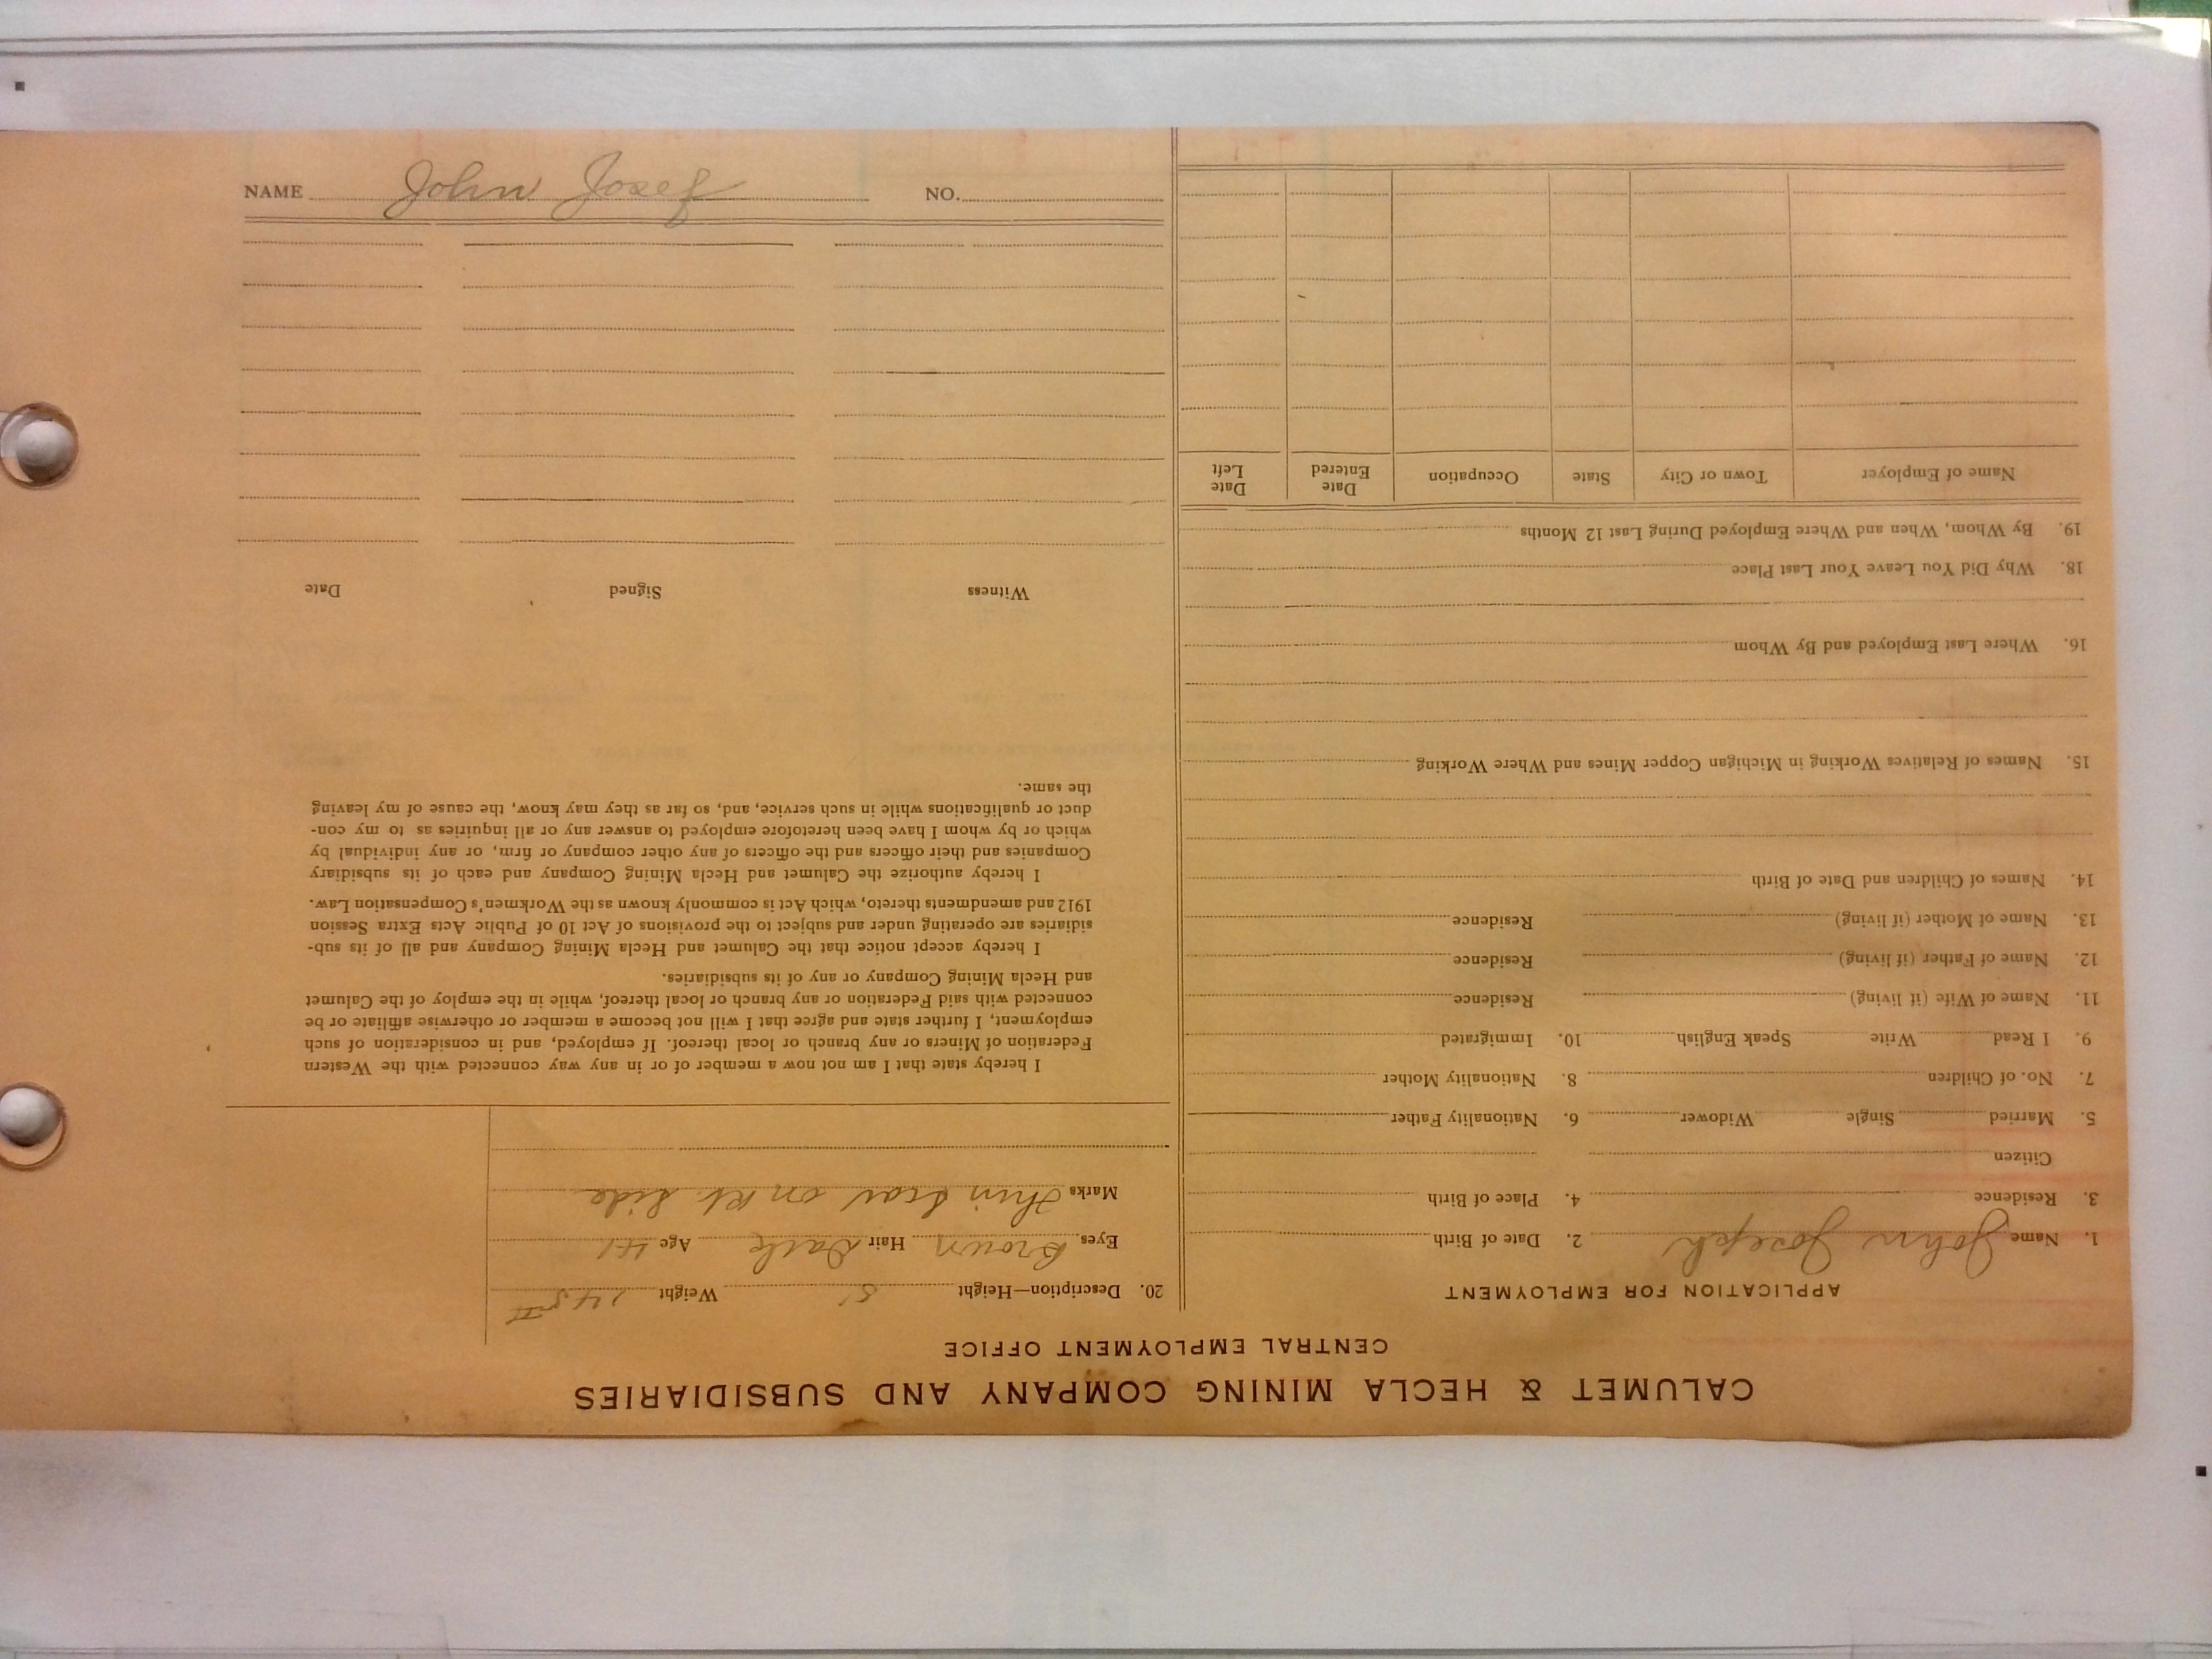 NAME John Josef NO.
CALUMET & HECLA MINING COMPANY AND SUBSIDIARIES
CENTRAL EMPLOYMENT OFFICE
APPLICATION FOR EMPLOYMENT
1. Name John Joseph 2. Date of Birth
3. Residence 4. Place of Birth
Citizen
5. Married Single Widower 6. Nationality Father
7. No. of Children 8. Nationality Mother
9. I Read Write Speak English 10. Immigrated
11. Name of Wife (if living) Residence
12. Name of Father (if living) Residence
13. Name of Mother (if living) Residence
14. Names of Children and Date of Birth
15. Names of Relatives Working in Michigan Copper Mines and Where Working
16. Where Last Employed and By Whom
18. Why Did You Leave Your Last Place
19. By Whom, When and Where Employed During Last 12 Months
Name of Employer Town or City State Occupation Date Entered Date Left
20. Description—Height 5' Weight 145#
Eyes Brown Hair Dark Age 41
Marks Thin Scar on Rt Side
I hereby state that I am not now a member of or in any way connected with the Western
Federation of Miners or any branch or local thereof. If employed, and in consideration of such
employment, I further state and agree that I will not become a member or otherwise affiliate or be
connected with said Federation or any branch or local thereof, while in the employ of the Calumet
and Hecla Mining Company or any of its subsidiaries.
I hereby accept notice that the Calumet and Hecla Mining Company and all of its sub-
sidiaries are operating under and subject to the provisions of Act 10 of Public Acts Extra Session
1912 and amendments thereto, which Act is commonly known as the Workmen's Compensation Law.
I hereby authorize the Calumet and Hecla Mining Company and each of its subsidiary
Companies and their officers and the officers of any other company or firm, or any individual by
which or by whom I have been heretofore employed to answer any or all inquiries as to my con-
duct or qualifications while in such service, and, so far as they may know, the cause of my leaving
the same.
Witness Signed Date